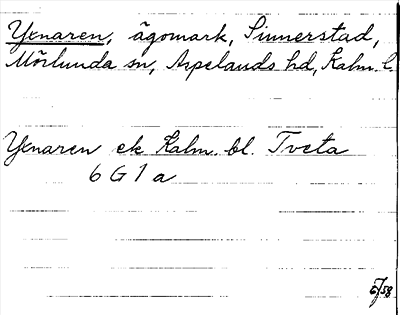 Yxnaren, ägomark, Sinnerstad,
Mörlunda sn, Aspelands hd, Kalm. l.
Yxnaren ek Kalm. bl. Tveta
6 G 1 a
6/58